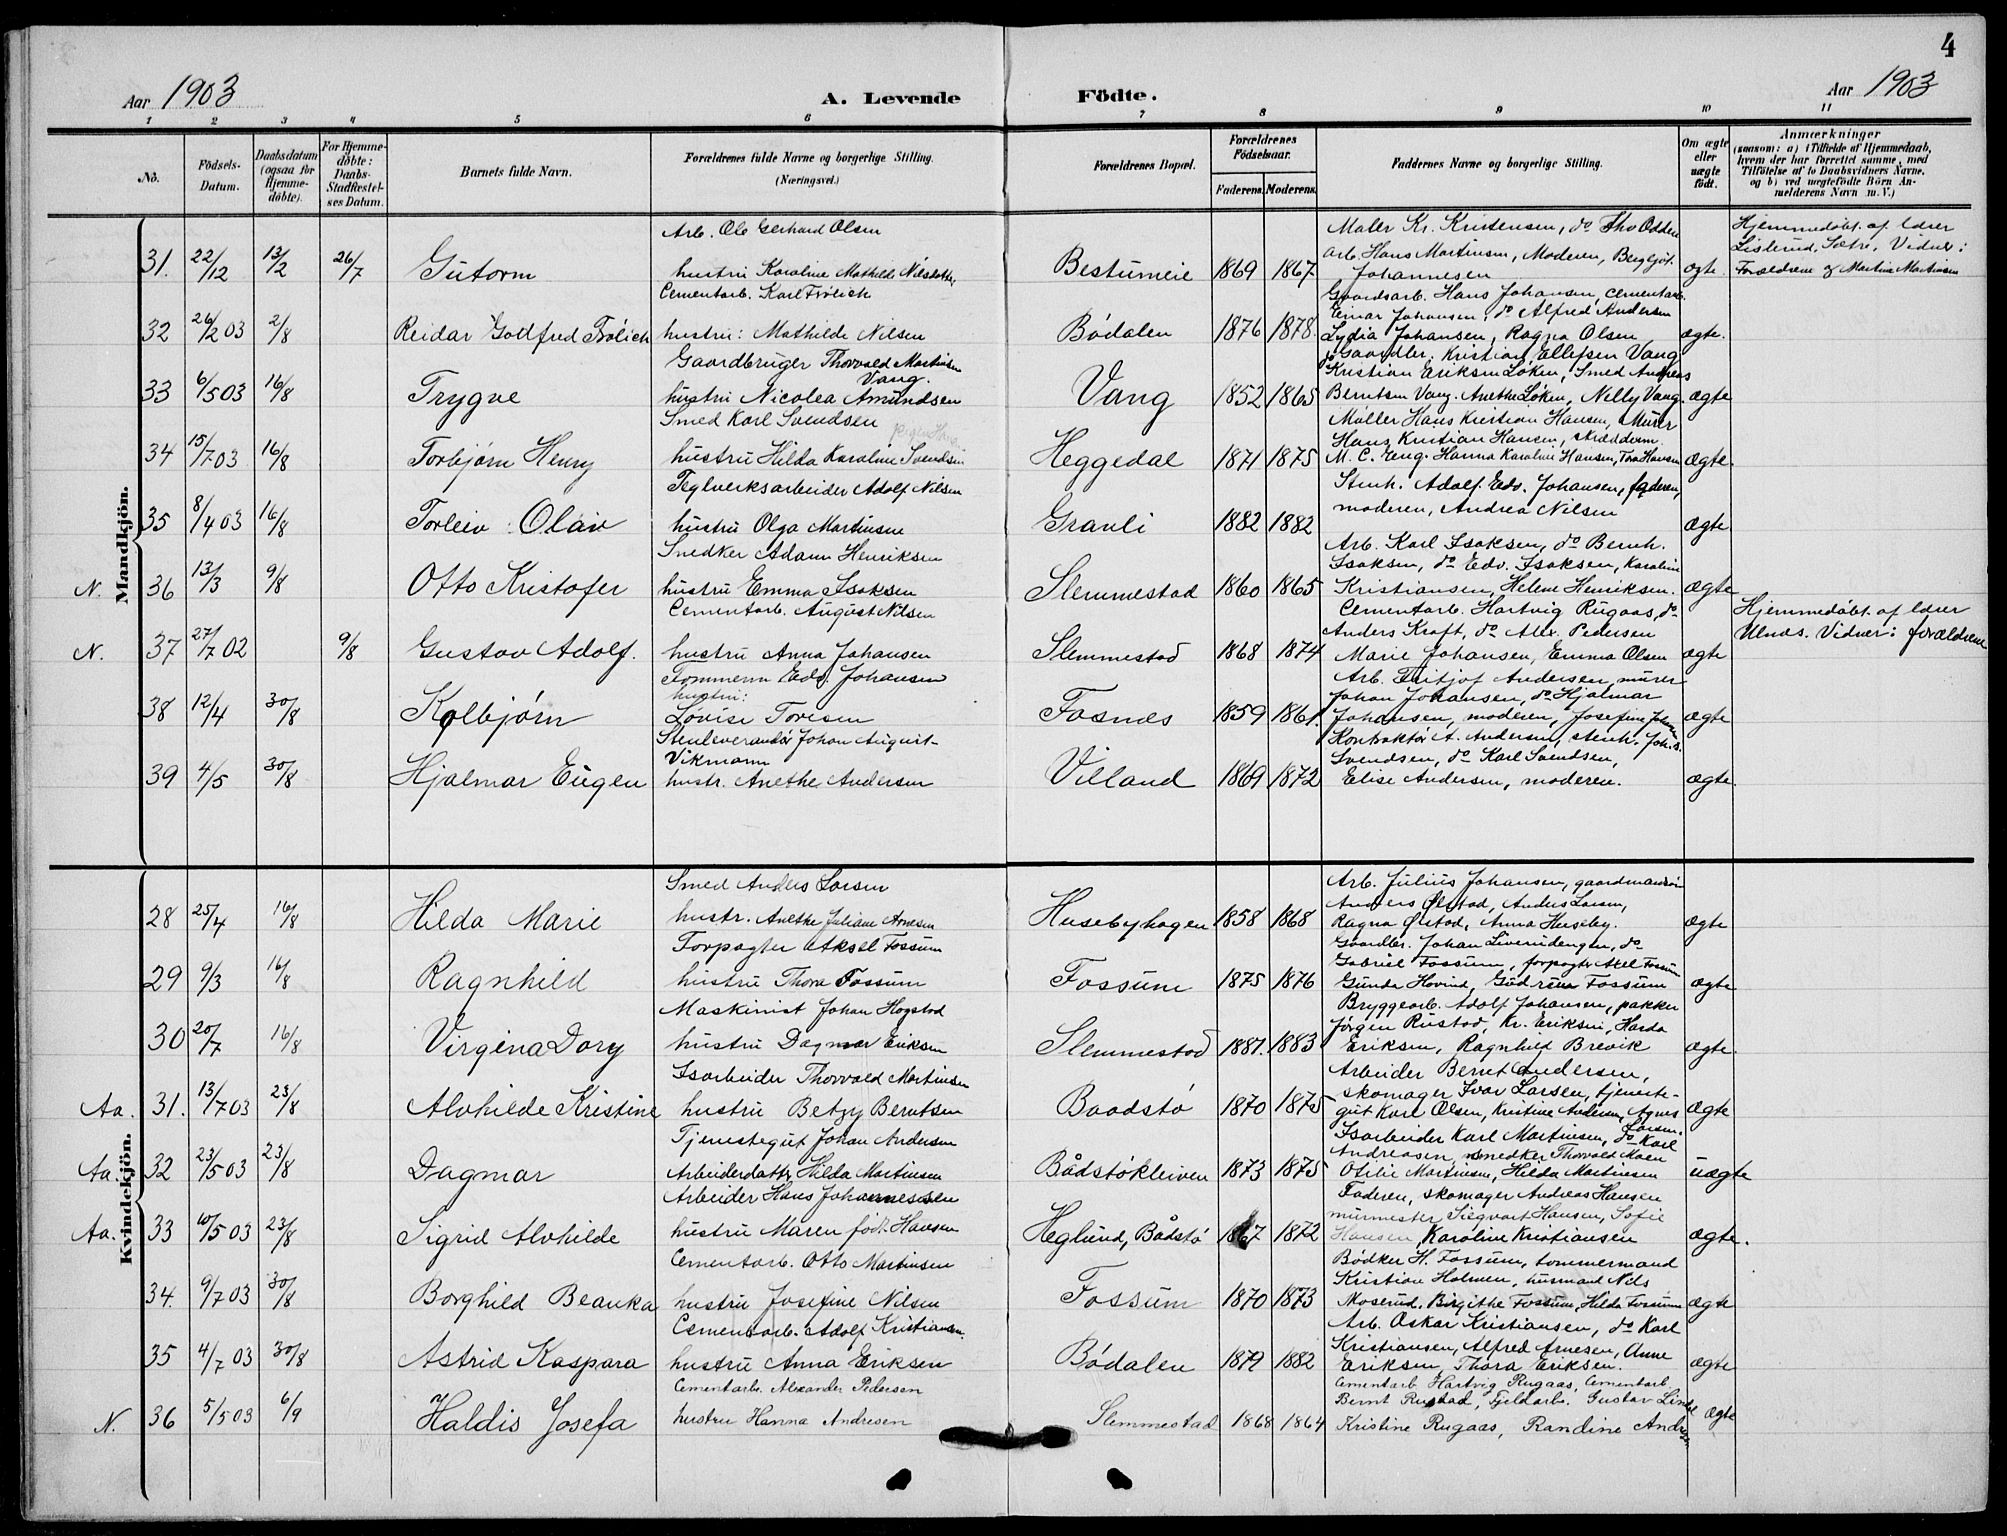 4
Aar 1903 A. Levende Födte. Aar 1903
1 2 3 4 5 6 7 8 9 10 11
No. Födsels-Datum. Daabsdatum (ogsaa for Hjemmedöbte). For Hjemmedöbte: Daabs-Stadfæstelses Datum. Barnets fulde Navn. Forældrenes fulde Navne og borgerlige Stilling. (Næringsvei.) Forældrenes Bopæl. Forældrenes Födselsaar. Faderens. Moderens. Faddernes Navne og borgerlige Stilling. Om ægte eller uægte födt. Anmærkninger (saasom: a) i Tilfælde af Hjemmedaab, hvem der har forrettet samme, med Tilföielse af to Daabsvidners Navne, og b) ved uægtefödte Börn Anmelderens Navn m. V.)
Mandkjön.
Arb. Ole Gerhard Olsen Maler Kr. Kristensen, do Tho Oddere Hjemmedøbt af lærer
31. 22/12 13/2 26/7 Gutorm hustru Karoline Mathilde Nilsdatter, Bestumeie 1869 1867 Arb. Hans Martinsen, Moderen, Bergljot Johannesen ægte Listerud, Sætre. Vidner: Forældrene og Martine Martinsen
Cementarb. Karl Frölich Gaardsarb. Hans Johansen, cementarb.
Einar Johansen, do Alfred Andersen
32 26/2 03 2/8 Reidar Godtfred Frölich hustru: Mathilde Nilsen Bødalen 1876 1878. Lydia Johansen, Ragna Olsen ægte.
Gaardbruger Thorvald Martinsen Vang. Gaardbr. Kristian Ellefsen Vang
Kristian Eriksen Løken, Smed Andreas
33 6/5 03 16/8 Trygve hustru Nicolea Amundsen Vang 1852 1865 Berntsen Vang. Anethe Løken, Nelly Vang. ægte
Smed Karl Svendsen Møller Hans Kristian Hansen, Murer
Hans Kristian Hansen, skrædderm.
34 15/7 03 16/8 Torbjørn Henry hustru Hilda Karoline Svendsen Heggedal 1871 1875 M. C. Eng. Hanna Karoline Hansen, Tora Hansen ægte.
Teglverksarbeider Adolf Nilsen Stenh. Adolf Edv. Johansen, faderen,
35 8/4 03 16/8 Torleiv Olav hustru Olga Martinsen Granli 1882 1882 moderen, Andrea Nilsen ægte
Snedker Adam Henriksen Arb. Karl Isaksen, do Bernh.
Isaksen, do Edv. Isaksen, Karoline
N. 36 13/3 9/8 Otto Kristofer hustru Emma Isaksen Slemmestad 1860 1865 Kristiansen, Helene Henriksen. ægte
Cementarb. August Nilsen Cementarb. Hartvig Rugaas, do Hjemmedøbt af lærer
Anders Kraft, do Alex. Pedersen Ulnes. Vidner: forældrene
N. 37 27/7 02 9/8 Gustav Adolf. hustru Anna Johansen Slemmestad 1868 1874 Marie Johansen, Emma Olsen ægte
Tømmerm Edv. Johansen Arb. Fritjof Andersen, murer
hustru: Johan Johansen, do Hjalmar
38 12/4 30/8 Kolbjørn Lovise Toresen Fosnæs 1859 1861. Johansen, moderen, Josefine Johansen ægte
Stenleverandør Johan August Kontraktør A. Andersen, stenh. Joh. S.
Vikmann Svendsen, do Karl Svendsen,
39 4/5 30/8 Hjalmar Eugen hustr. Anethe Andersen Villand 1869 1872 Elise Andersen, moderen. ægte
Kvindekjön.
Smed Anders Larsen Arb. Julius Johansen, gaardmandsøn
Anders Ølstad, Anders Larsen,
28 25/4 16/8 Hilda Marie hustr. Anethe Juliane Arnesen Husebyhagen 1858 1868 Ragna Ølstad, Anna Huseby. ægte
Forpagter Aksel Fossum Gaardbr. Johan Liverudengen, do
Gabriel Fossum, forpagter Axel Fossum
29 9/3 16/8 Ragnhild hustru Thora Fossum Fossum 1875 1876 Gunda Hovind, Gudrun Fossum ægte
Maskinist Johan Hogstad Bryggearb. Adolf Johansen, pakker
Jørgen Rustad, Kr. Eriksen, Harda
30 20/7 16/8 Virgina Dory hustru Dagmar Eriksen Slemmestad 1881. 1883 Eriksen, Ragnhild Brevik ægte.
Isarbeider Thorvald Martinsen Arbeider Bernt Andersen,
skomager Ivar Larsen, tjeneste-
Aa. 31. 13/7 03 23/8 Alvhilde Kristine hustru Betzy Berntsen Baadstø 1870 1875 gut Karl Olsen, Kristine Andersen, Agnes Larsen. ægte
Tjenestegut Johan Andersen Isarbeider Karl Martinsen, do Karl
Andreasen, snedker Thorvald Moen
Aa. 32 23/5 03 23/8 Dagmar Arbeiderdatter Hilda Martinsen Bådstøkleiven 1873 1875 Otilie Martinsen, Hilda Martinsen uægte
Arbeider Hans Johannessen Faderen, skomager Andreas Hansen
murmester Siegvart Hansen, Sofie
Aa. 33 10/5 03 23/8 Sigrid Alvhilde hustru Maren født Hansen Heglund, Bådstø 1867 1872 Hansen, Karoline Kristiansen ægte.
Cementarb. Otto Martinsen Bødker H. Fossum, tømmermand
Kristian Holmen, husmand Nils
34. 9/7 03 30/8 Borghild Beanka hustru Josefine Nilsen Fossum 1870 1873 Moserud, Birgithe Fossum, Hilda Fossum ægte
Cementarb. Adolf Kristiansen. Arb. Oskar Kristiansen, do Karl
Kristiansen, Alfred Arnesen, Anne
35 4/7 03 30/8 Astrid Kaspara hustru Anna Eriksen Bødalen 1879 1882 Eriksen, Thora Eriksen. ægte
Cementarb. Alexander Pedersen Cementarb. Hartvig Rugaas, Cementarb.
Bernt Rustad, Fjeldarb. Gustav Linde
N. 36 5/5 03 6/9 Haldis Josefa hustru Hanna Andresen Slemmestad 1868 1864 Kristine Rugaas, Randine ægte